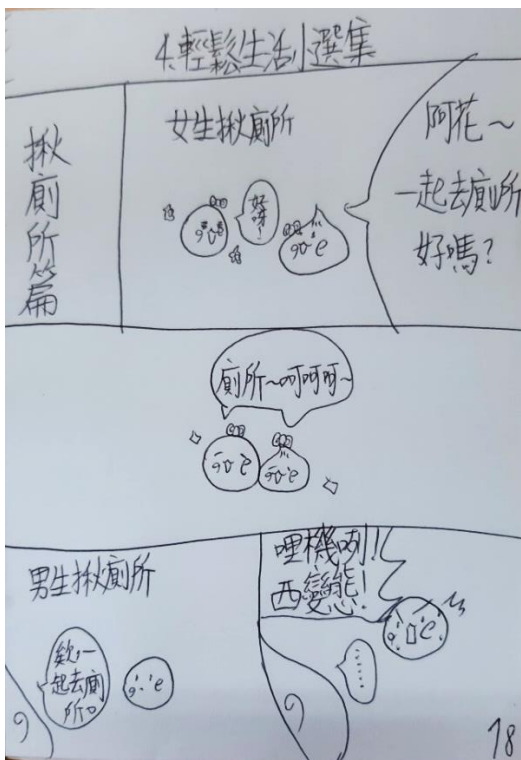 4.輕鬆生活小選集
揪廁所篇
女生揪廁所
阿花～
一起去廁所
好嗎？
好呀！
廁所～呵呵呵～
男生揪廁所
欸，一
起去廁
所。
哩機咧！！
西變態！
……
18